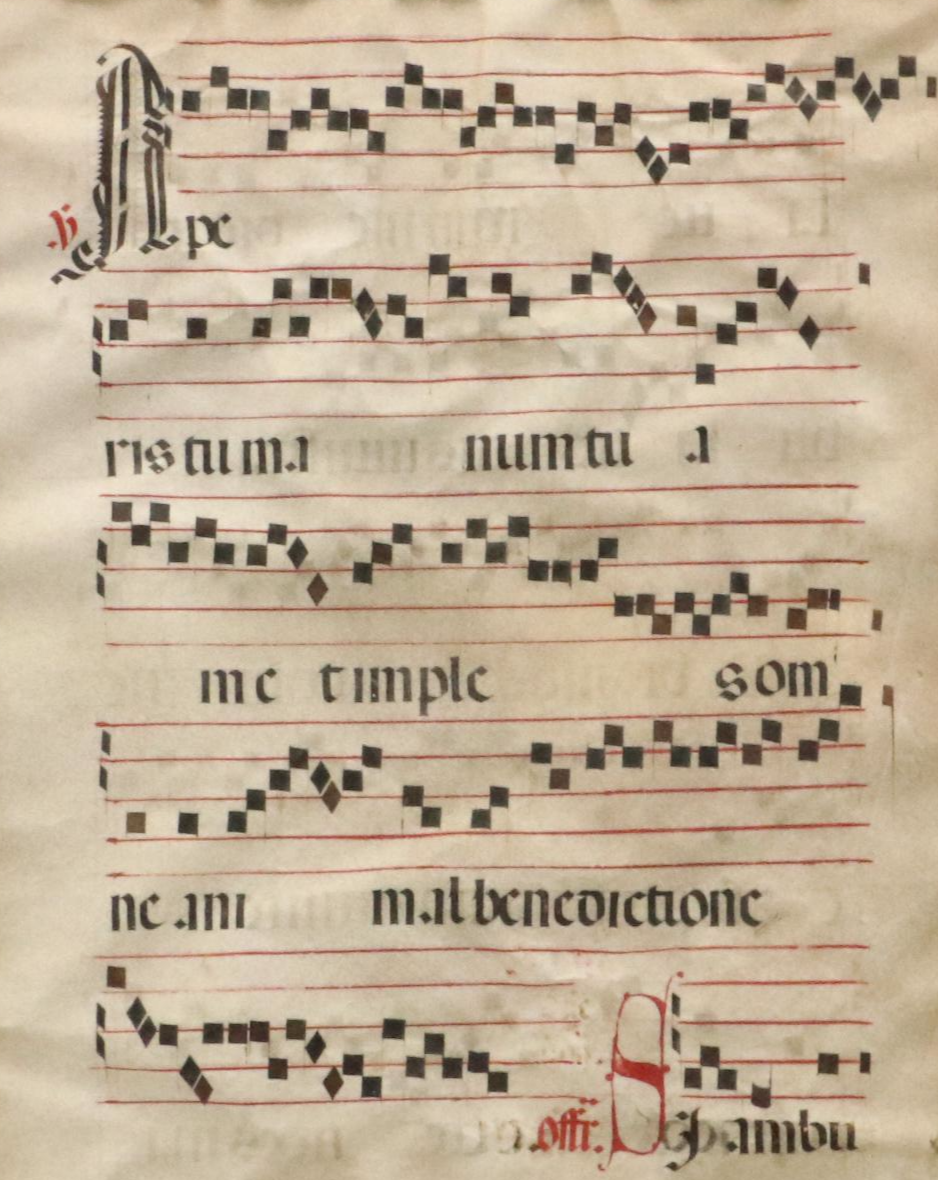 ℣ Ape
ris tu ma num tu a
me t imple som
ne ani mal benedictione
offr. Si ambu